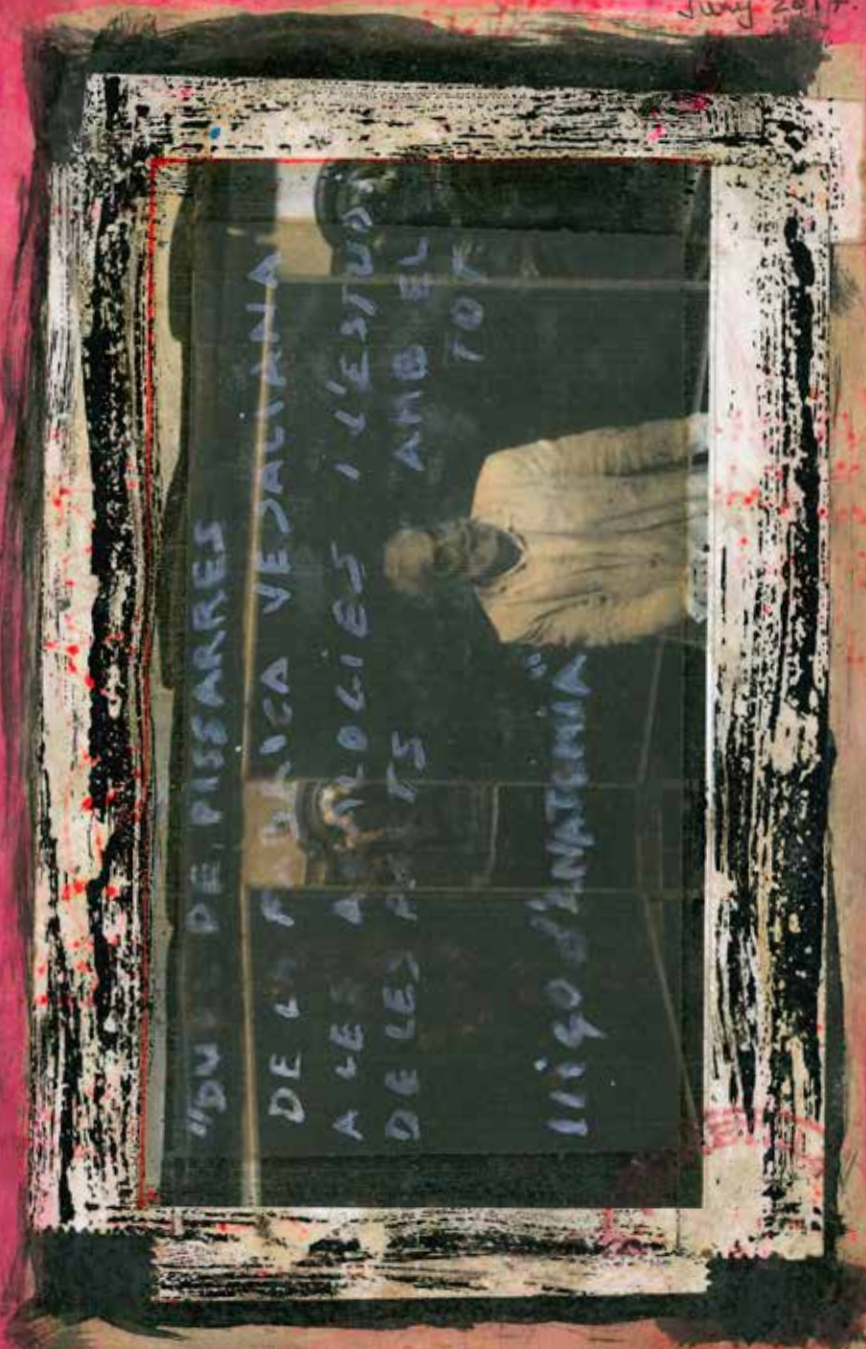 Juny 2017.
"DUES PISSARRES
DE LA FÀBRICA VESALIANA
A LES ANALOGIES I L'ESTUDI
DE LES PARTS AMB EL
TOT
"
lliçó d'ANATOMIA